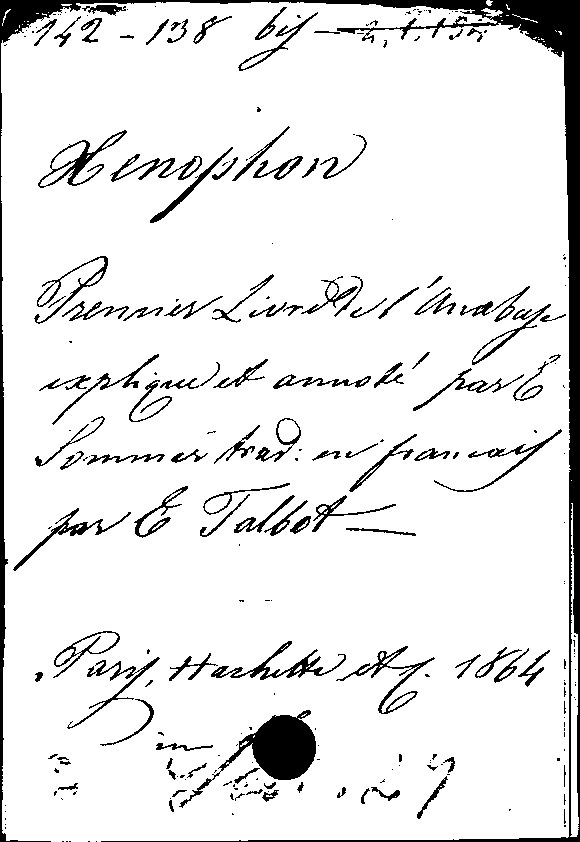 142 - 138 bis
Xenophon
Premier Livre de l'Anabase
expliqué et annoté par E
Sommer trad: en français
par E Talbot
Paris, Hachette et C. 1864
in